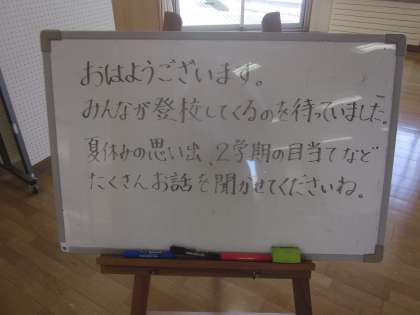 おはようございます。
みんなが登校してくるのを待っていました。
夏休みの思い出、2学期の目当てなど
たくさんお話を聞かせてくださいね。